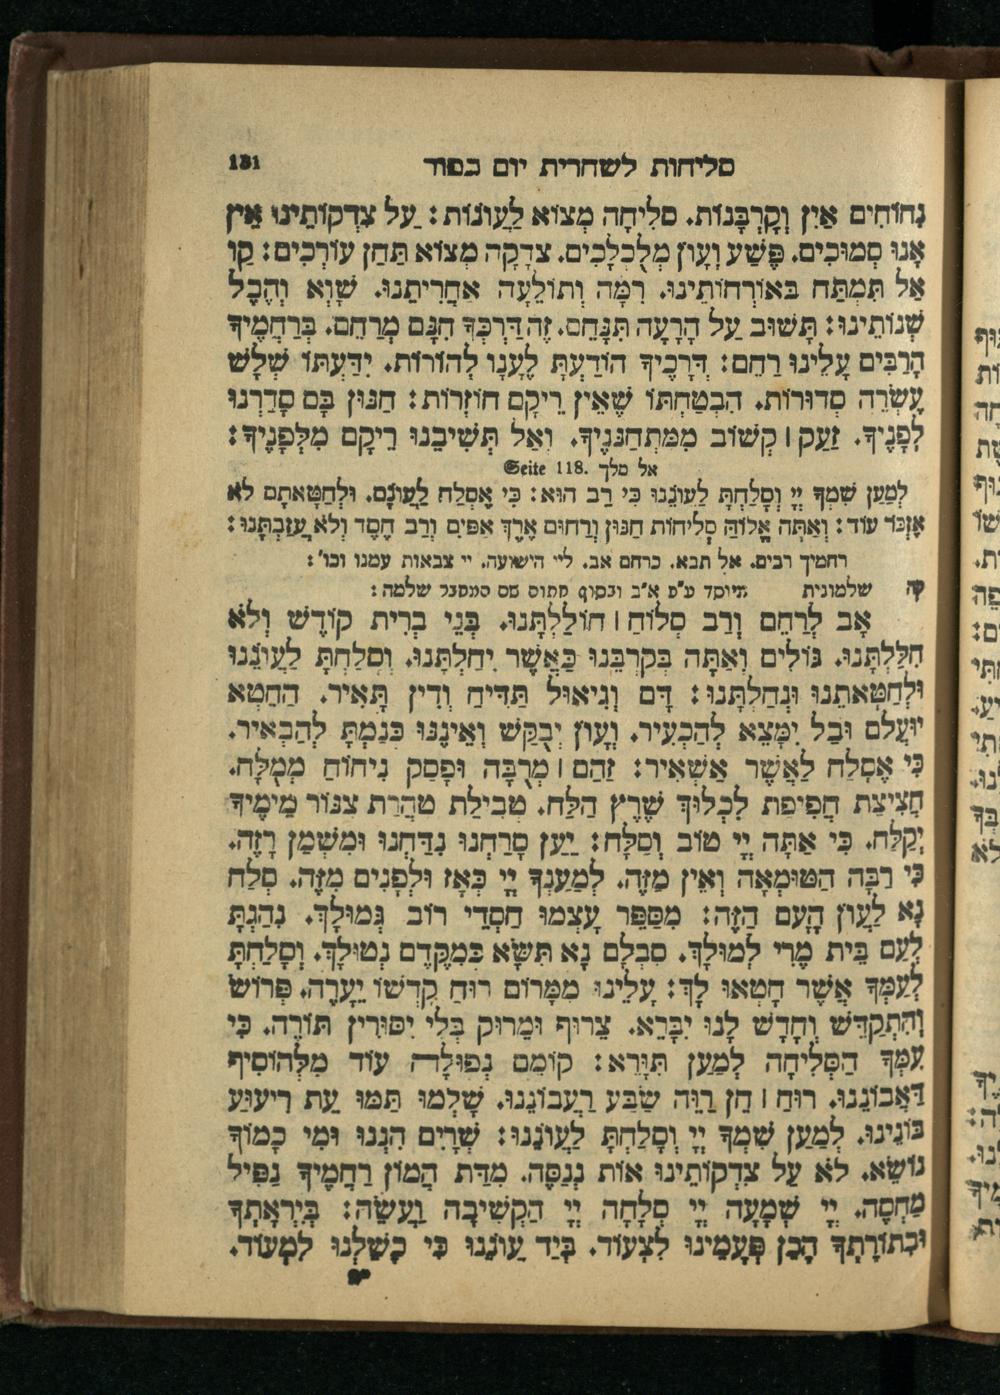 סליחות לשחרית יום כפור 131
נִחוֹחִים אַיִן וְקָרְבָּנוֹת. סְלִיחָה מְצוֹא לַעֲוֹנוֹת: עַל צִדְקוֹתֵינוּ אֵין
אָנוּ סְמוּכִים. פֶּשַׁע וְעָוֹן מְלֻכְלָכִים. צְדָקָה מְצוֹא תַּחַן עוֹרְכִים: קַו
אַל תִּמְתַּח בְּאוֹרְחוֹתֵינוּ. רִמָּה וְתוֹלֵעָה אַחֲרִיתֵנוּ. שָׁוְא וְהֶבֶל
שְׁנוֹתֵינוּ: תָּשׁוּב עַל הָרָעָה תִּנָּחֵם. זֶה דַּרְכְּךָ חִנָּם מְרַחֵם. בְּרַחֲמֶיךָ
הָרַבִּים עָלֵינוּ רַחֵם: דְּרָכֶיךָ הוֹדַעְתָּ לֶעָנָו לְהוֹרוֹת. יִדַּעְתּוֹ שְׁלֹשׁ
עֶשְׂרֵה סְדוּרוֹת. הִבְטַחְתּוֹ שֶׁאֵין רֵיקָם חוֹזְרוֹת: חַנּוּן בָּם סָדַרְנוּ
לְפָנֶיךָ. זַעַק ׀ קְשׁוֹב מִמִּתְחַנְּנֶיךָ. וְאַל תְּשִׁיבֵנוּ רֵיקָם מִלְּפָנֶיךָ:
אל מלך Seite 118.
לְמַעַן שִׁמְךָ יְיָ וְסָלַחְתָּ לַעֲוֹנֵנוּ כִּי רַב הוּא: כִּי אֶסְלַח לַעֲוֹנָם. וּלְחַטָּאתָם לֹא
אֶזְכּוֹר עוֹד: וְאַתָּה אֱלוֹהַּ סְלִיחוֹת חַנּוּן וְרַחוּם אֶרֶךְ אַפַּיִם וְרַב חֶסֶד וְלֹא עֲזַבְתָּנוּ:
רחמיך רבים. אל תבא. כרחם אב. ליי הישועה. יי צבאות עמנו וכו׳:
קה שלמונית מיוסד ע״פ א״ב ובסוף חתום שם המחבר שלמה:
אָב לְרַחֵם וְרַב סְלוֹחַ ׀ חוֹלַלְתָּנוּ. בְּנֵי בְרִית קוֹדֶשׁ וְלֹא
חִלַּלְתָּנוּ. גּוֹלִים וְאַתָּה בְּקִרְבֵּנוּ כַּאֲשֶׁר יִחַלְתָּנוּ. וְסָלַחְתָּ לַעֲוֹנֵנוּ
וּלְחַטָּאתֵנוּ וּנְחַלְתָּנוּ: דָּם וְגִיאוּל תַּדִּיחַ וְדִין תָּאִיר. הַחֵטְא
יוּעֲלַם וּבַל יִמָּצֵא לְהַכְעִיר. וְעָוֹן יְבֻקַּשׁ וְאֵינֶנּוּ כְּנַמְתָּ לְהַבְאִיר.
כִּי אֶסְלַח לַאֲשֶׁר אַשְׁאִיר: זֹהַם ׀ מְרֻבֶּה וּפָסַק נִיחוֹחַ מְמֻלָּח.
חֲצִיצַת חֲפִיפַת לִכְלוּךְ שֶׁרֶץ הַלַּח. טְבִילַת טָהֳרַת צִנּוֹר מֵימֶיךָ
יְקַלַּח. כִּי אַתָּה יְיָ טוֹב וְסַלָּח: יַעַן סָרַחְנוּ נִדַּחְנוּ וּמִשְׁמַן רָזֶה.
כִּי רַבָּה הַטּוּמְאָה וְאֵין מַזֶּה. לְמַעַנְךָ יְיָ כְּאָז וּלְפָנִים מִזֶּה. סְלַח
נָא לַעֲוֹן הָעָם הַזֶּה: מִסַּפֵּר עָצְמוּ חַסְדֵי רוֹב גְּמוּלָךְ. נִהַגְתָּ
לְעַם בֵּית מֶרִי לְמוּלָךְ. סִבְלָם נָא תִּשָּׂא כְּמִקֶּדֶם נְטוּלָךְ. וְסָלַחְתָּ
לְעַמְּךָ אֲשֶׁר חָטְאוּ לָךְ: עָלֵינוּ מִמָּרוֹם רוּחַ קָדְשׁוֹ יֵעָרֶה. פְּרוֹשׁ
וְהִתְקַדֵּשׁ וְחָדָשׁ לָנוּ יִבָּרֵא. צֵרוּף וּמֵרוּק בְּלִי יִסּוּרִין תּוֹרֶה. כִּי
עִמְּךָ הַסְּלִיחָה לְמַעַן תִּוָּרֵא: קוֹמֵם נְפוּלָה עוֹד מִלְּהוֹסִיף
דַּאֲבוֹנֵנוּ. רוּחַ ׀ חֵן רַוֵּה שַׂבַּע רַעֲבוֹנֵנוּ. שָׁלְמוּ תַּמּוּ עֵת רִיעוּעַ
בּוֹנֵינוּ. לְמַעַן שִׁמְךָ יְיָ וְסָלַחְתָּ לַעֲוֹנֵנוּ: שְׁרָיִם הִנְנוּ וּמִי כָמוֹךָ
נוֹשֵׂא. לֹא עַל צִדְקוֹתֵינוּ אוֹת נְנַסֶּה. מִדַּת הֲמוֹן רַחֲמֶיךָ נַפִּיל
מַחְסֶה. יְיָ שְׁמָעָה יְיָ סְלָחָה יְיָ הַקְשִׁיבָה וַעֲשֵׂה: בְּיִרְאָתְךָ
וּבְתוֹרָתְךָ הָכֵן פְּעָמֵינוּ לִצְעוֹד. בְּיַד עֲוֹנֵנוּ כִּי כָשַׁלְנוּ לִמְעוֹד.